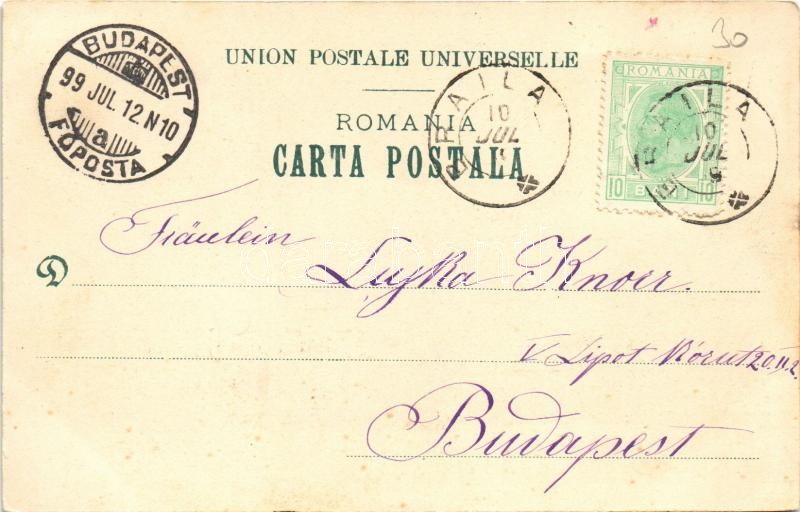 30
UNION POSTALE UNIVERSELLE
ROMANIA
CARTA POSTALĂ
BUDAPEST
99 JUL. 12 N 10
a
FŐPOSTA
BRAILA
10
JUL
ROMANIA
10 BANI 10
BRAILA
10
JUL
9
Fräulein Lujka Knorr.
V Lipot Körut 20. II. 2.
Budapest